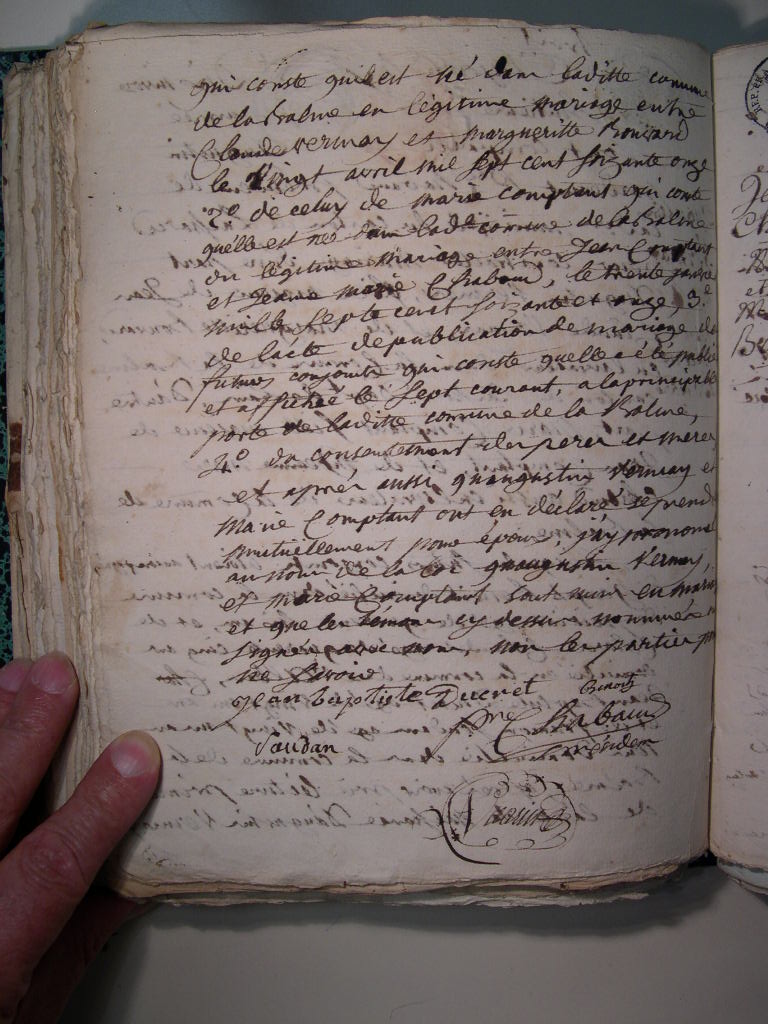 qui conste quil est né dans laditte commune
de la Balme en légitime mariage entre
Claude vernay et margueritte
le Vingt avril mil sept cent soizante onze
2º de celuy de marie comptant qui conste
quelle est née dans lad.te commune de la Balme
du légitime mariage entre Jean Comptant
et Jeane marie Chabaud, le trente janvie
mille septe cent soizante et onze, 3.º
de lacte de publication de mariage de
futurs conjoints qui conste quelle a été publié
et affichée le sept courant, a la principalle
porte de laditte commune de la Balme,
4.º du consentement des peres et meres
et aprés aussi quaugustin Vernay et
Marie Comptant ont eu déclaré se prend
mutuellement pour époux, j'ay prononcé
au nom de la loi quaugustin Vernay,
et marie Comptant sont unis en mariage
et que les témoins cy dessus nommés
signés avec moi, non les parties p
ne savoir
Jean baptiste Ducret Benoit
p.re Chabaud
Saudan